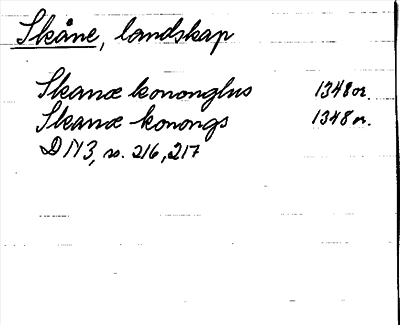 Skåne, landskap
Skanæ kononghs 1348 or.
Skanæ konongs 1348 or.
DN 3, ss. 216, 217